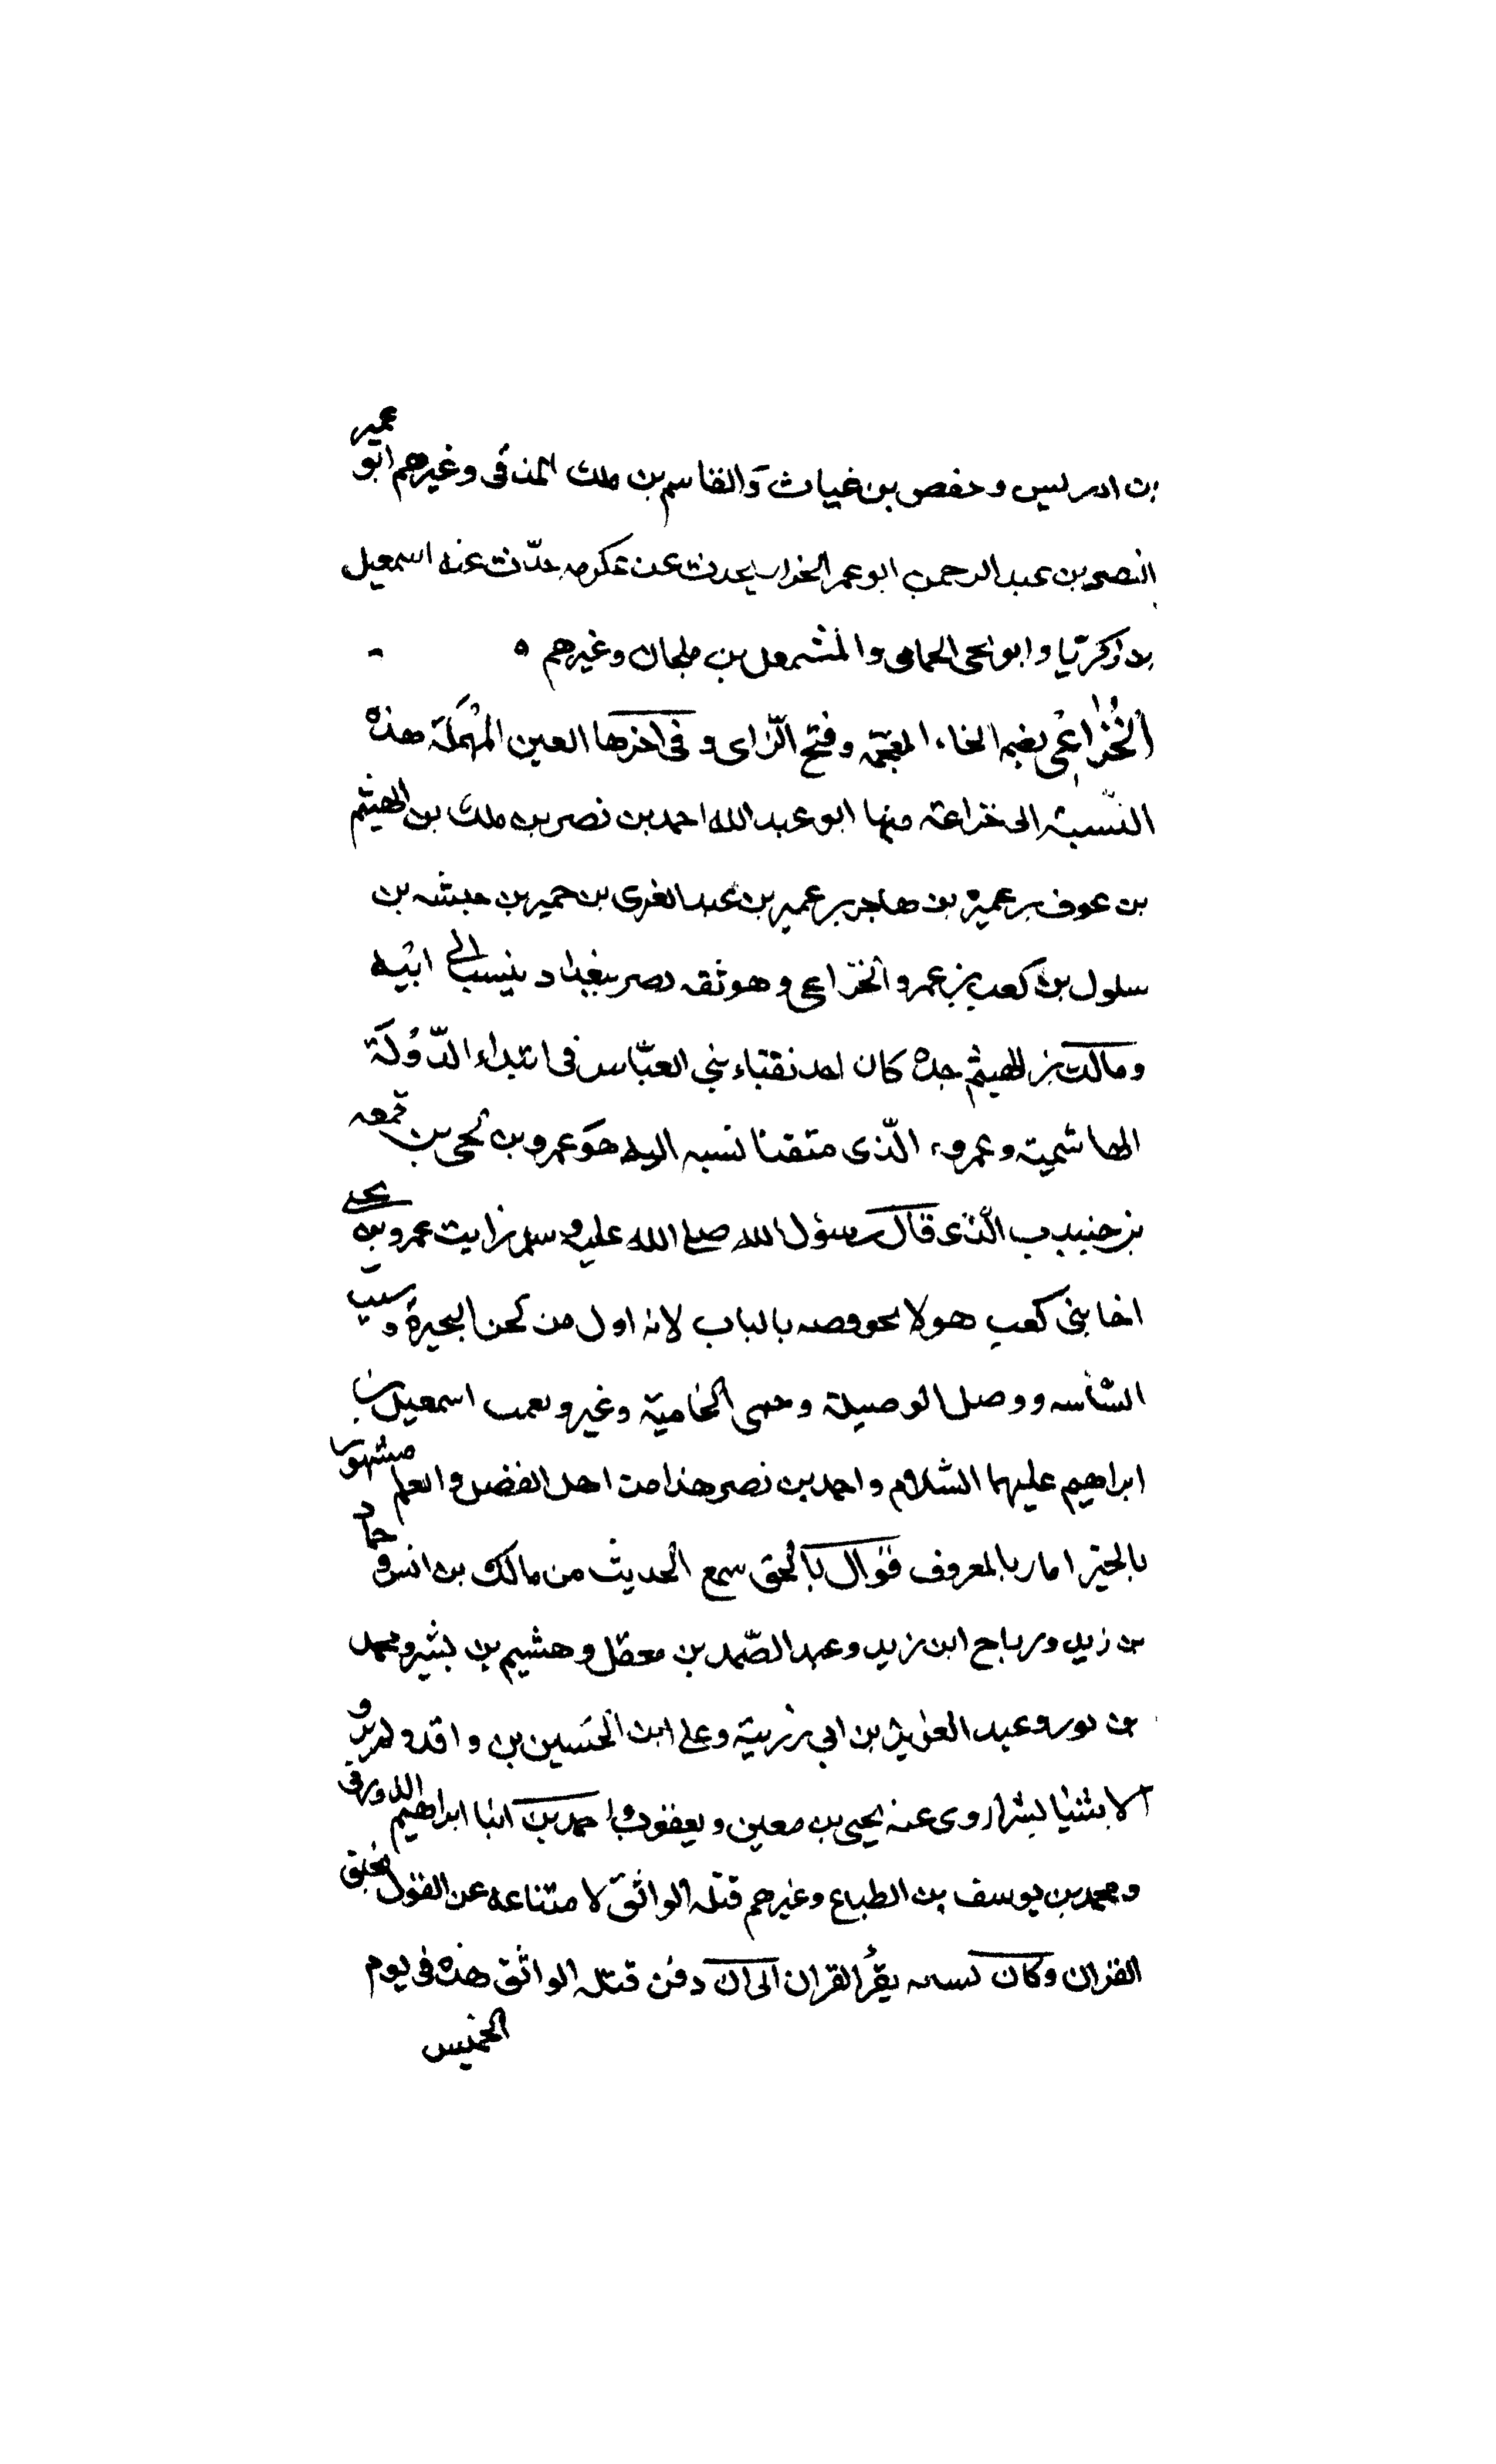 بن ادريس وحفص بن غياث والقاسم بن ملك المذنى وغيرهم ابو عمير
النصر بن عبد الرحمن ابو عمر الخزاز يحدث عن عكرمه حدّث عنه اسمعيل
بن زكريّا وابو يحيى الحمامى والمشمعل بن ملحان وغيرهم ه
الخُزاعِى بضم الخاء المعجمة وفتح الزّاى وفى اخرها العين المُهمَلة هذه
النّسبة الى خزاعة منها ابو عبد الله احمد بن نصر بن ملك بن الهيثم
بن عوف بن عميرة بن هاجر بن عمير بن عبد العزى بن حمير بن حبشه بن
سلول بن كعب بن عمرو الخزاعى وهو ثقه نصر ببغداد ينسب الى ابيه
ومالك بن الهيثم جده كان احد نقباء بني العبّاس فى ابتداء الدّوُلَة
الهاشمية وعمرو الّذى متقنا نسبه اليه هوَ عمرو بن لحى بن قمعه
بن خنيدب الّذى قال رسول الله صلى الله عليه وسلم رايت عمرو بن لحى
اخا بنى كعب هولا بالباب لانه اول من بحن البحيرة وسيب
السّاسه ووصل الوصيلة وحمى الحامية وغير اسمعيل بن
ابراهيم عليهما السّلام واحمد بن نصر هذا من اهل الفضل والعلم مشهورا
بالخير امار بالمعروف قوال بالحق سمع الحديث من مالك بن انس وحماد
بن زيد ورباح ابن زيد وعبد الصّمد بن معقل وهشيم بن بشير ومحمد
بن ثور وعبد العزيز بن ابي رزرية وعلى ابن الحَسين بن واقد ولم يرو
الا شيا يسيرا روى عنه يحيى بن معين ويعقوب واحمد بن ابنا ابراهيم الدورقى
ومحمد بن يوسف بن الطباع وغيرهم قتله الواثق لامتناعه عن القول بخلق
القران وكان يقرأ القران الى ان دفن قتله الواثق هذه فى يوم
الخميس